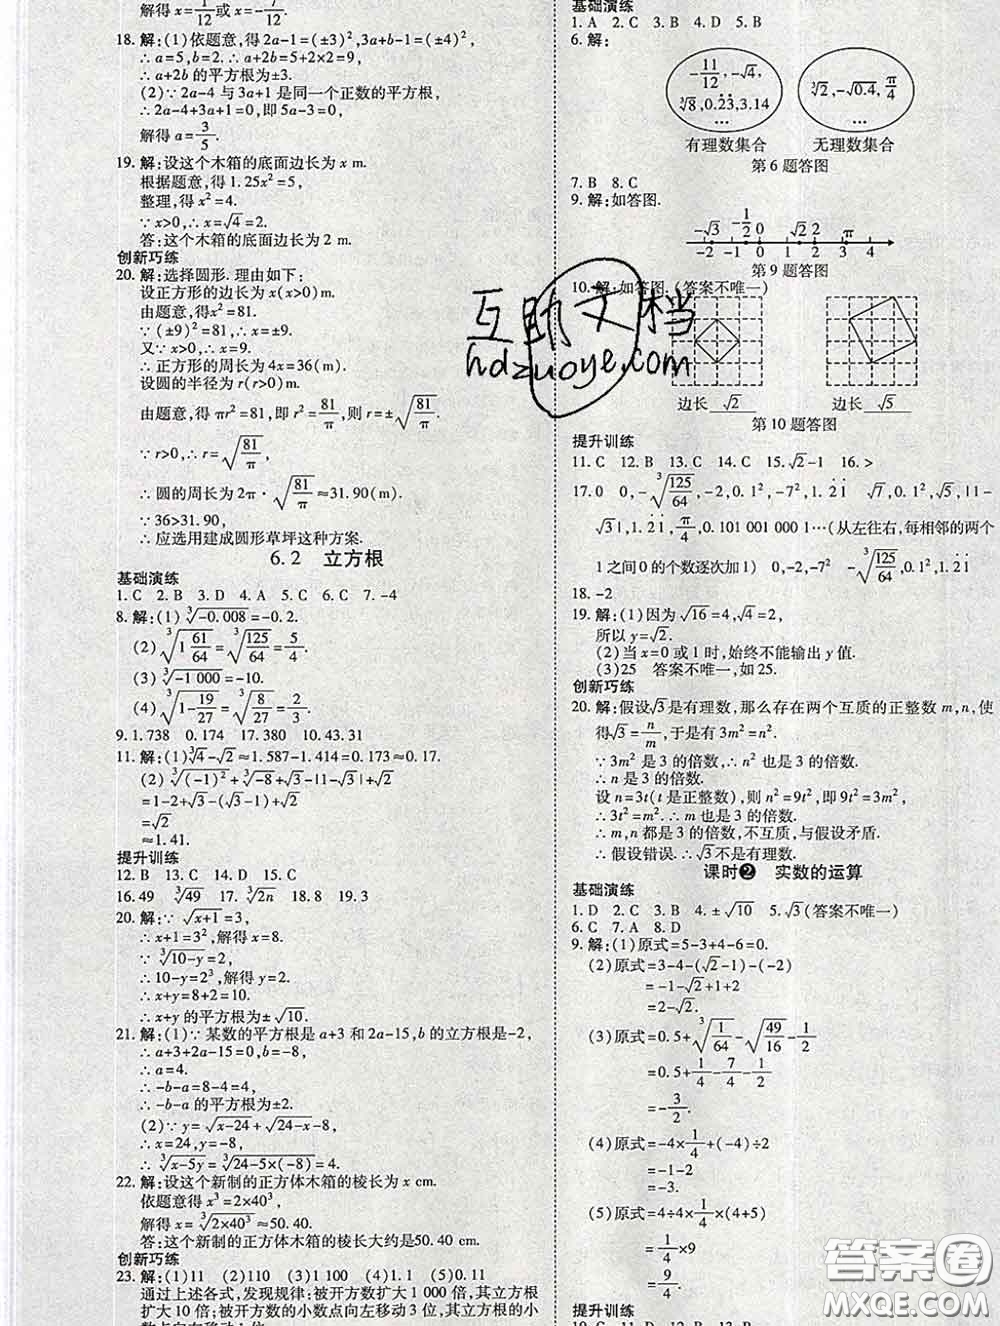 解得 x=1/12 或 x=-7/12.
18. 解:(1)依题意,得 2a-1=(±3)²,3a+b-1=(±4)²,
∴a=5,b=2. ∴a+2b=5+2×2=9,
∴a+2b 的平方根为±3.
(2)∵2a-4 与 3a+1 是同一个正数的平方根,
∴2a-4+3a+1=0,即 5a-3=0,
解得 a=3/5.
19. 解:设这个木箱的底面边长为 x m.
根据题意,得 1.25x²=5,
整理,得 x²=4.
∵x>0,∴x=√4=2.
答:这个木箱的底面边长为 2 m.
创新巧练
20. 解:选择圆形. 理由如下:
设正方形的边长为 x(x>0)m.
由题意,得 x²=81.
∵(±9)²=81,∴x=±9.
又∵x>0,∴x=9.
∴正方形的周长为 4x=36(m).
设圆的半径为 r(r>0)m.
由题意,得 πr²=81,即 r²=81/π,则 r=±√(81/π).
∵r>0,∴r=√(81/π).
∴圆的周长为 2π·√(81/π)≈31.90(m).
∵36>31.90,
∴应选用建成圆形草坪这种方案.
6.2 立方根
基础演练
1. C 2. B 3. D 4. A 5. C 6. C 7. -4
8. 解:(1)∛-0.008=-0.2.
(2)∛(1 61/64)=∛(125/64)=5/4.
(3)∛-1 000=-10.
(4)∛(1-19/27)=∛(8/27)=2/3.
9. 1.738 0.174 17.380 10. 43.31
11. 解:(1)∛4-√2≈1.587-1.414=0.173≈0.17.
(2)∛(-1)²+∛-8+√3-|1-√3|+√2
=1-2+√3-(√3-1)+√2
=√2
≈1.41.
提升训练
12. B 13. C 14. D 15. C
16. 49 ∛49 17. ∛2n 18. 8 19. 3
20. 解:∵√(x+1)=3,
∴x+1=3²,解得 x=8.
∵∛(10-y)=2,
∴10-y=2³,解得 y=2.
∴x+y=8+2=10.
∴x+y 的平方根为±√10.
21. 解:(1)∵某数的平方根是 a+3 和 2a-15,b 的立方根是-2,
∴a+3+2a-15=0,b=-8,
∴a=4.
∴-b-a=8-4=4,
∴-b-a 的平方根为±2.
(2)∵y=√(x-24)+√(24-x)-8,
∴x=24,y=-8,
∴∛(x-5y)=∛(24-5×(-8))=4.
22. 解:设这个新制的正方体木箱的棱长为 x cm.
依题意得 x³=2×40³,
解得 x=∛(2×40³)≈50.40.
答:这个新制的正方体木箱的棱长大约是 50.40 cm.
创新巧练
23. 解:(1)11 (2)110 (3)1 100 (4)1.1 (5)0.11
通过上述各式,发现规律:被开方数扩大 1 000 倍,其立方根
扩大 10 倍;被开方数的小数点向左移动 3 位,其立方根的小
数点向左移动 1 位.
基础演练
1. A 2. C 3. B 4. D 5. B
6. 解:
-11/12,-√4, ∛2,-√0.4,π/4
∛8,0.2̇3̇,3.14
… …
有理数集合 无理数集合
第 6 题答图
7. B 8. C
9. 解:如答图.
-√3 -1/2 0 √2 2 π
-2 -1 0 1 2 3 4
第 9 题答图
10. 解:如答图. (答案不唯一)
边长 √2 边长 √5
第 10 题答图
提升训练
11. C 12. B 13. C 14. C 15. √2-1 16. >
17. 0 0,-∛(125/64),-2,0.1²,-7²,1.2̇1̇ √7,0.1²,√5,|1-
√3|,1.2̇1̇,π/4,0.101 001 000 1…(从左往右,每相邻的两个
1 之间 0 的个数逐次加 1) 0,-2,-7² -∛(125/64),0.1²,1.2̇1̇
18. -2
19. 解:(1)因为√16=4,√4=2,
所以 y=√2.
(2)当 x=0 或 1 时,始终不能输出 y 值.
(3)25 答案不唯一,如 25.
创新巧练
20. 解:假设√3是有理数,那么存在两个互质的正整数 m,n,使
得√3=n/m,于是有 3m²=n².
∵3m² 是 3 的倍数,∴n² 也是 3 的倍数.
∴n 是 3 的倍数.
设 n=3t(t 是正整数),则 n²=9t²,即 9t²=3m²,
∴3t²=m². ∴m 也是 3 的倍数.
∴m,n 都是 3 的倍数,不互质,与假设矛盾.
∴假设错误. ∴√3不是有理数.
课时❷ 实数的运算
基础演练
1. D 2. C 3. B 4. ±√10 5. √3(答案不唯一)
6. C 7. A 8. D
9. 解:(1)原式=5-3+4-6=0.
(2)原式=3-4-(√2-1)-(-2)
=-1-√2+1+2
=2-√2.
(3)原式=0.5+∛(1/64)-√(49/16)-1/2
=0.5+1/4-7/4-1/2
=-3/2.
(4)原式=-4×1/4+(-4)÷2
=-1-2
=-3.
(5)原式=4÷4×1/4×(4+5)
=1/4×9
=9/4.
提升训练
互助文档
hdzuoye.com
答案圈
MXQE.COM